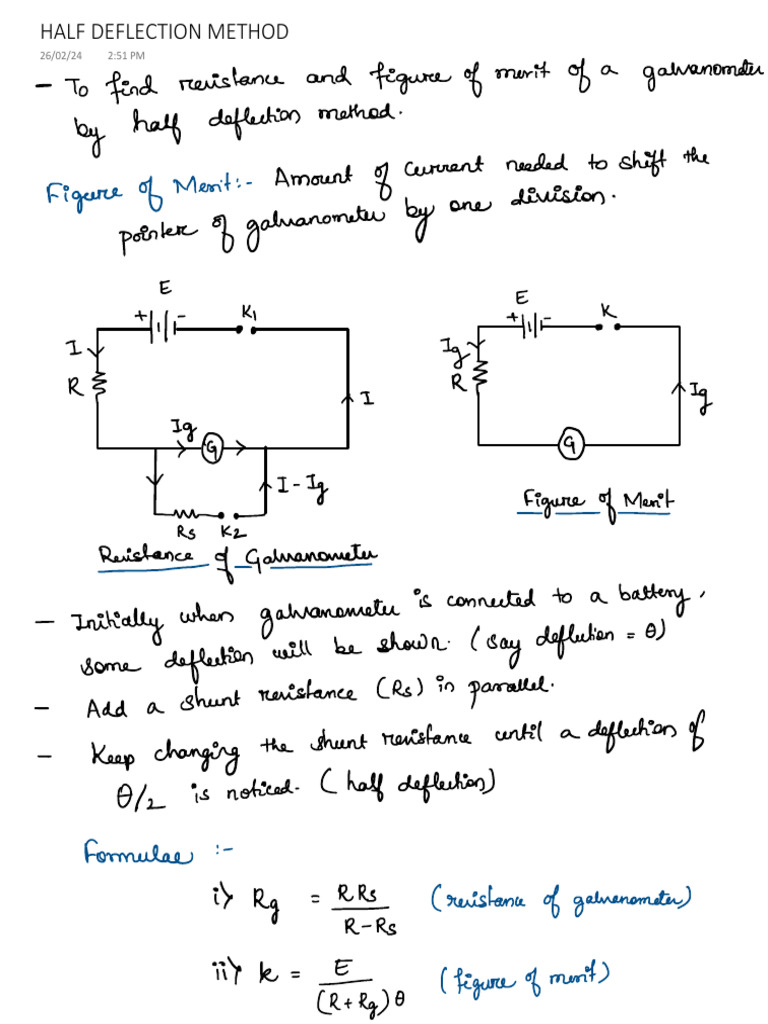 HALF DEFLECTION METHOD
26/02/24 2:51 PM
- To find resistance and figure of merit of a galvanometer
by half deflection method.
Figure of Merit:- Amount of current needed to shift the
pointer of galvanometer by one division.
E
+ - K1
I
R
I
Ig
G
I - Ig
Rs K2
Resistance of Galvanometer
E
+ - K
Ig
R
Ig
G
Figure of Merit
- Initially when galvanometer is connected to a battery,
some deflection will be shown. (say deflection = θ)
- Add a shunt resistance (Rs) in parallel.
- Keep changing the shunt resistance until a deflection of
θ/2 is noticed. (half deflection)
Formulae :-
i> Rg = RRs / R-Rs (resistance of galvanometer)
ii> k = E / (R+Rg)θ (figure of merit)